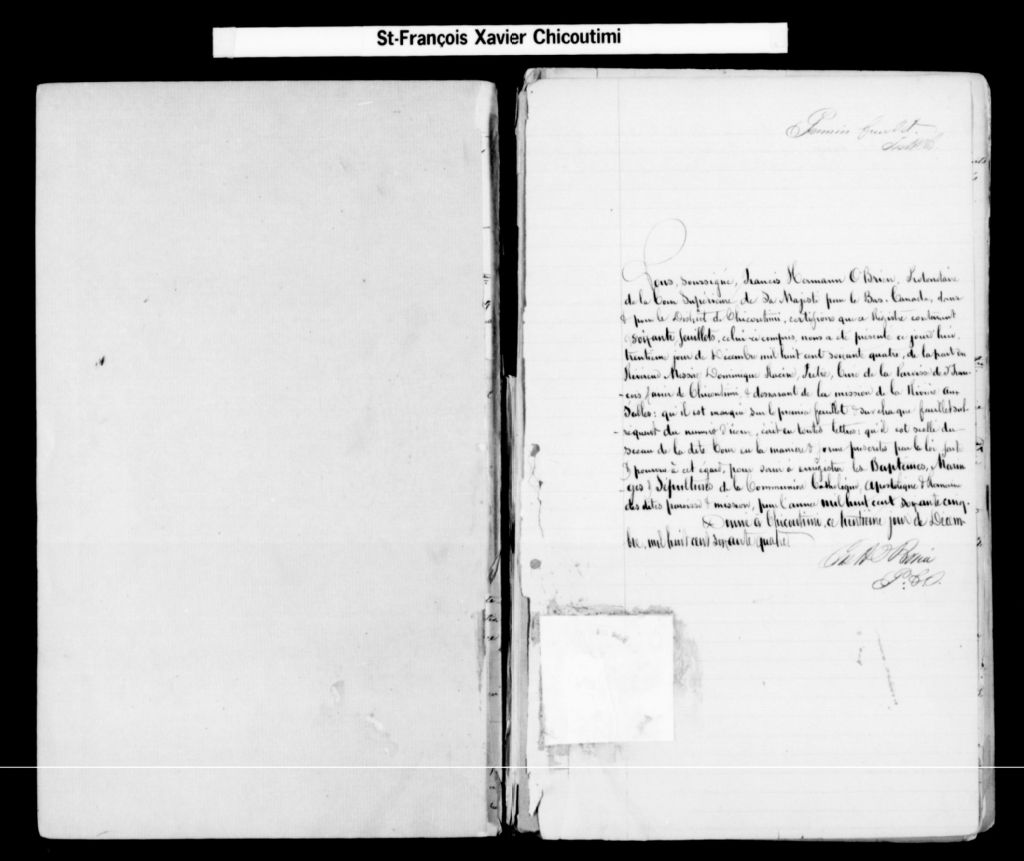 St-François Xavier Chicoutimi
Premier feuillet.
Nous, soussigné, Francis Hermann O'Brien, Protonotaire
de la Cour Supérieure de Sa Majesté pour le Bas-Canada, dans
& pour le District de Chicoutimi, certifions que ce Régistre contenant
soixante feuillets, celui-ci compris, nous a été présenté ce jour hui
trentième jour de Décembre mil huit cent soixante quatre, de la part du
Révérend Messire Dominique Racine, Prêtre, Curé de la Paroisse de St Fran-
-çois Xavier de Chicoutimi & desservant de la mission de la Rivière aux
Sables: qu'il est marqué sur le premier feuillet & sur chaque feuillet sub-
-séquent du numéro d'iceux, écrit en toutes lettres: qu'il est scellé du
sceau de la dite Cour en la manière & forme prescrites par la loi faite
& pourvue à cet égard, pour servir à enrégistrer les Baptêmes, Maria-
ges & Sépultures de la Communion Catholique, Apostolique & Romaine
des dites paroisse & mission, pour l'année mil huit cent soixante cinq.
Donné à Chicoutimi, ce trentième jour de Décem-
bre, mil huit cent soixante quatre
O'Brien
P.C.S.